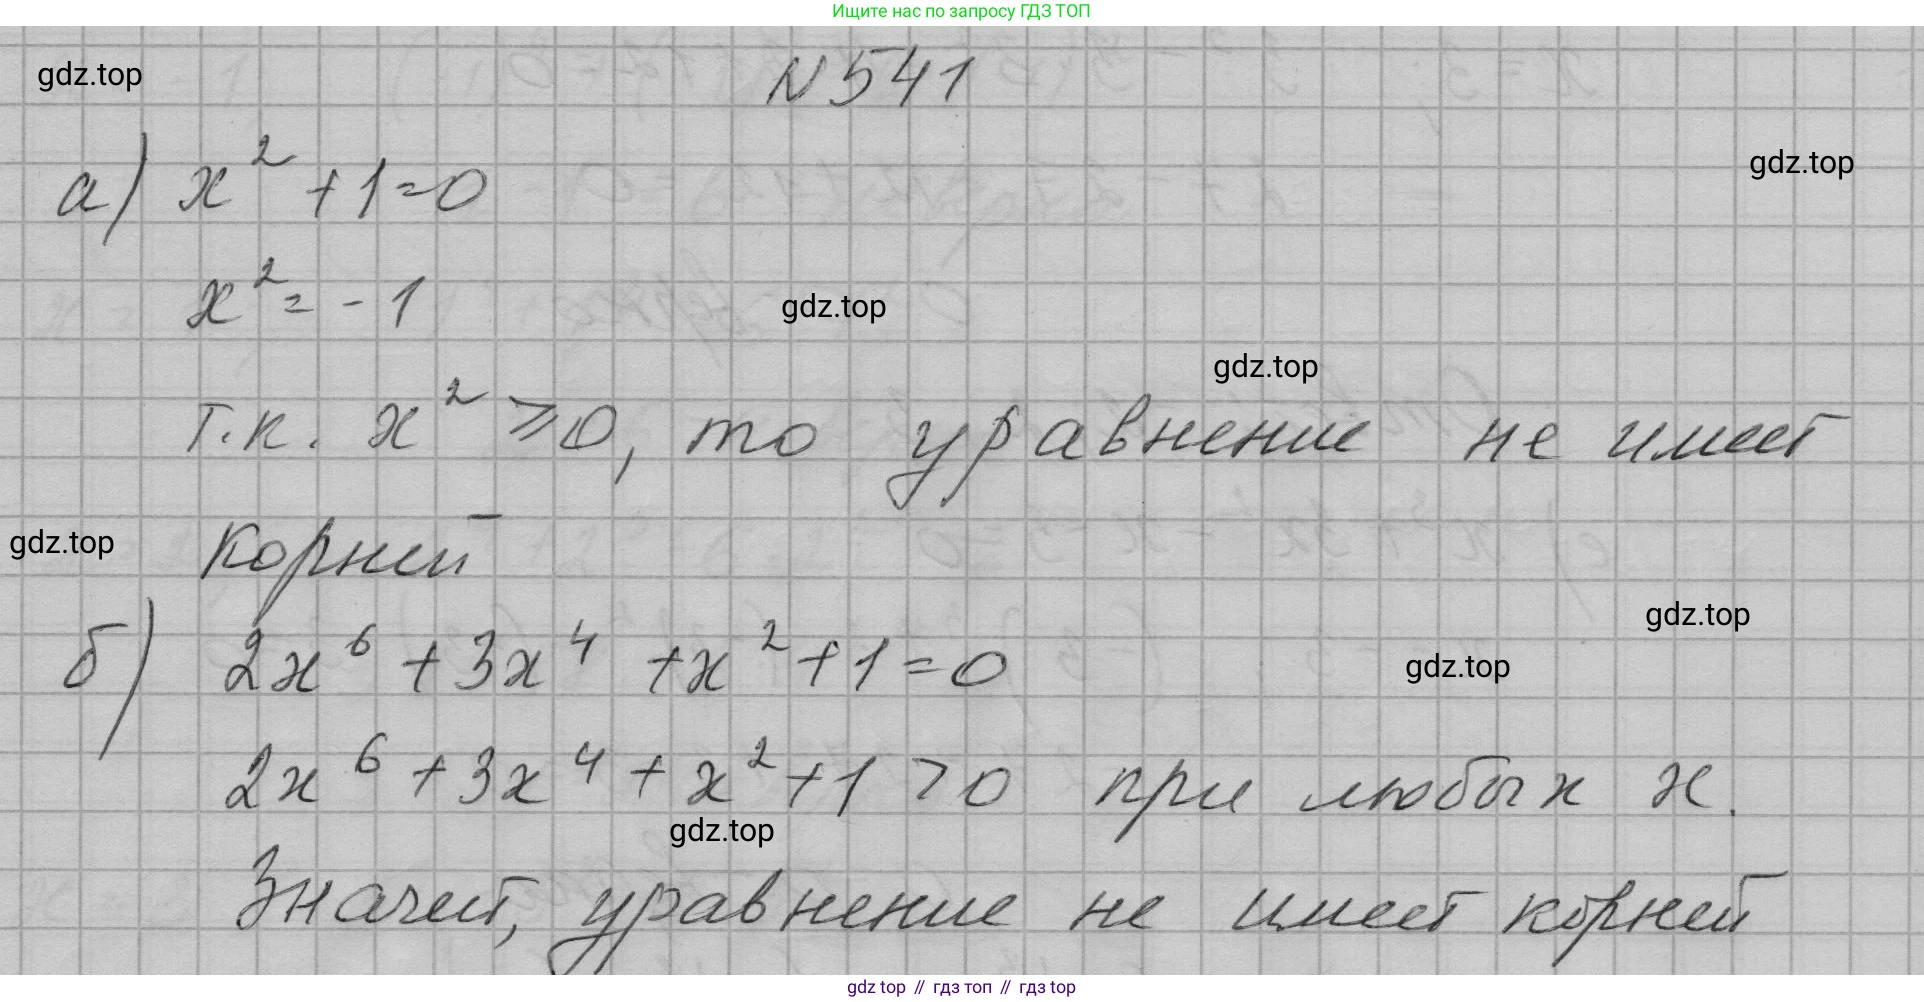 Ищите нас по запросу ГДЗ ТОП
N 541
gdz.top
а) x² + 1 = 0
gdz.top
x² = - 1
gdz.top
gdz.top
т.к. x² ⩾ 0, то уравнение не имеет
gdz.top
корней
gdz.top
б) 2x⁶ + 3x⁴ + x² + 1 = 0
gdz.top
2x⁶ + 3x⁴ + x² + 1 > 0 при любых x.
gdz.top
Значит, уравнение не имеет корней
gdz top // гдз топ // гдз top